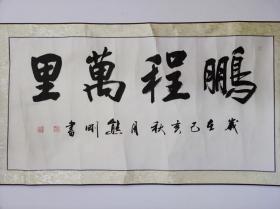 鵬程萬里
歲在己亥秋月熊剛書